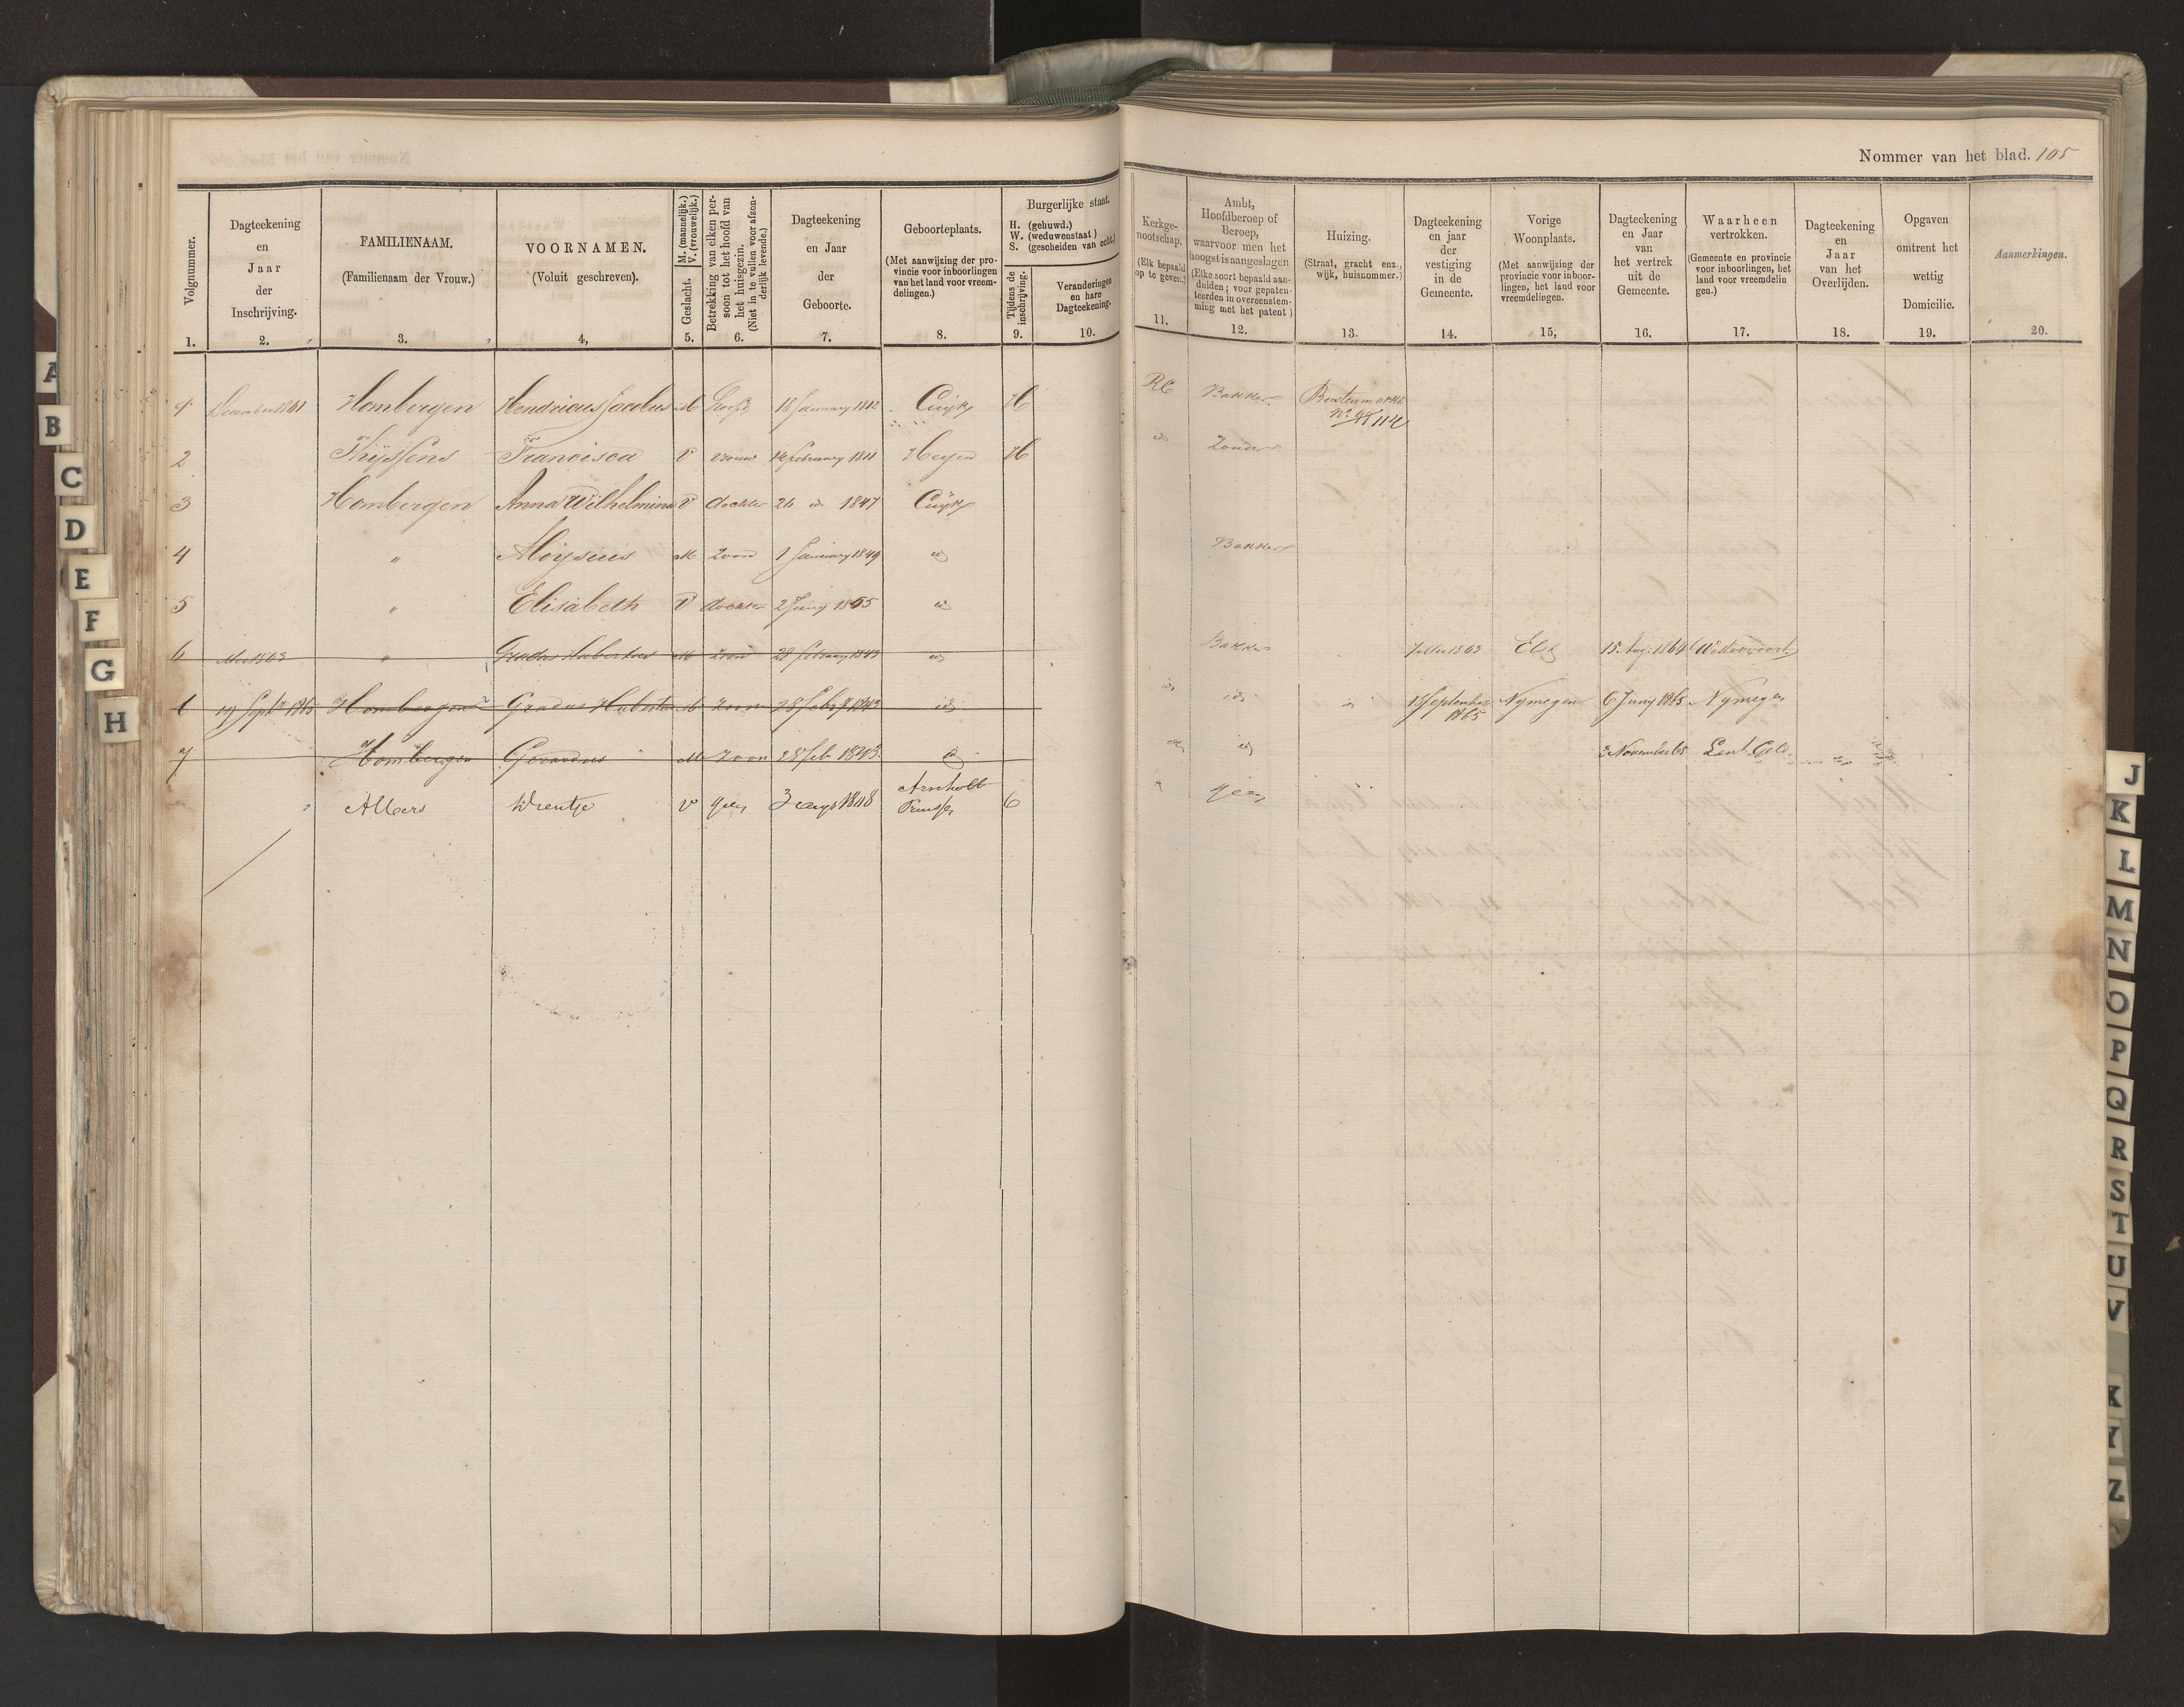 Nommer van het blad. 105
Volgnummer.
1.
Dagteekening
en
Jaar
der
Inschrijving.
2.
FAMILIENAAM.
(Familienaam der Vrouw.)
3.
VOORNAMEN.
(Voluit geschreven).
4,
Geslacht.
M. (mannelijk.)
V. (vrouwelijk.)
5.
Betrekking van elken per-
soon tot het hoofd van
het huisgezin.
(Niet in te vullen voor afzon-
derlijk levende.)
6.
Dagteekening
en Jaar
der
Geboorte.
7.
Geboorteplaats.
(Met aanwijzing der pro-
vincie voor inboorlingen
van het land voor vreem-
delingen.)
8.
Burgerlijke staat.
H. (gehuwd.)
W. (weduwenstaat)
S. (gescheiden van echt.)
Tijdens de
inschrijving.
9.
Veranderingen
en hare
Dagteekening.
10.
Kerkge-
nootschap.
(Elk bepaald
op te geven.)
11.
Ambt,
Hoofdberoep of
Beroep,
waarvoor men het
hoogst is aangeslagen
(Elke soort bepaald aan-
duiden; voor gepaten-
teerden in overeenstem-
ming met het patent)
12.
Huizing.
(Straat, gracht enz.,
wijk, huisnommer.)
13.
Dagteekening
en jaar
der
vestiging
in de
Gemeente.
14.
Vorige
Woonplaats.
(Met aanwijzing der
provincie voor inboor-
lingen, het land voor
vreemdelingen.
15,
Dagteekening
en Jaar
van
het vertrek
uit de
Gemeente.
16.
Waarheen
vertrokken.
(Gemeente en provincie
voor inboorlingen, het
land voor vreemdelin
gen.)
17.
Dagteekening
en
Jaar
van het
Overlijden.
18.
Opgaven
omtrent het
wettig
Domicilie.
19.
Aanmerkingen.
20.
1 December 1861 Hombergen Hendricus Jacobus M hoofd 18 January 1812 Cuijk H RC Bakker Beestenmarkt
No 114
2 Thijssens Francisca V vrouw 14 february 1811 Heyen H id Zonder
3 Hombergen Anna Wilhelmina V dochter 26 id 1847 Cuijk
4 " Aloysius M Zoon 1 January 1849 id Bakker
5 " Elisabeth V dochter 2 Juny 1855 id
6 Mei 1863 " Gradus Hubertus M zoon 28 february 1843 id Bakker 7 Mei 1863 Elst 15 Aug: 1864
6 19 Septr 1865 Hombergen Gradus Hubertus M zoon 28 Febr 1843 id id id id 18 September
1865 Nymegen 6 Juny 1865 Nymegen
7 Hombergen Gerardus M zoon 28 feb 1843. id id id 3 November 65 Lent Geld.
Albers Wientje V geen 3 aug 1848 geen
Pruisse
A
B
C
D
E
F
G
H
J
K
L
M
N
O
P
Q
R
S
T
U
V
K
Y
Z